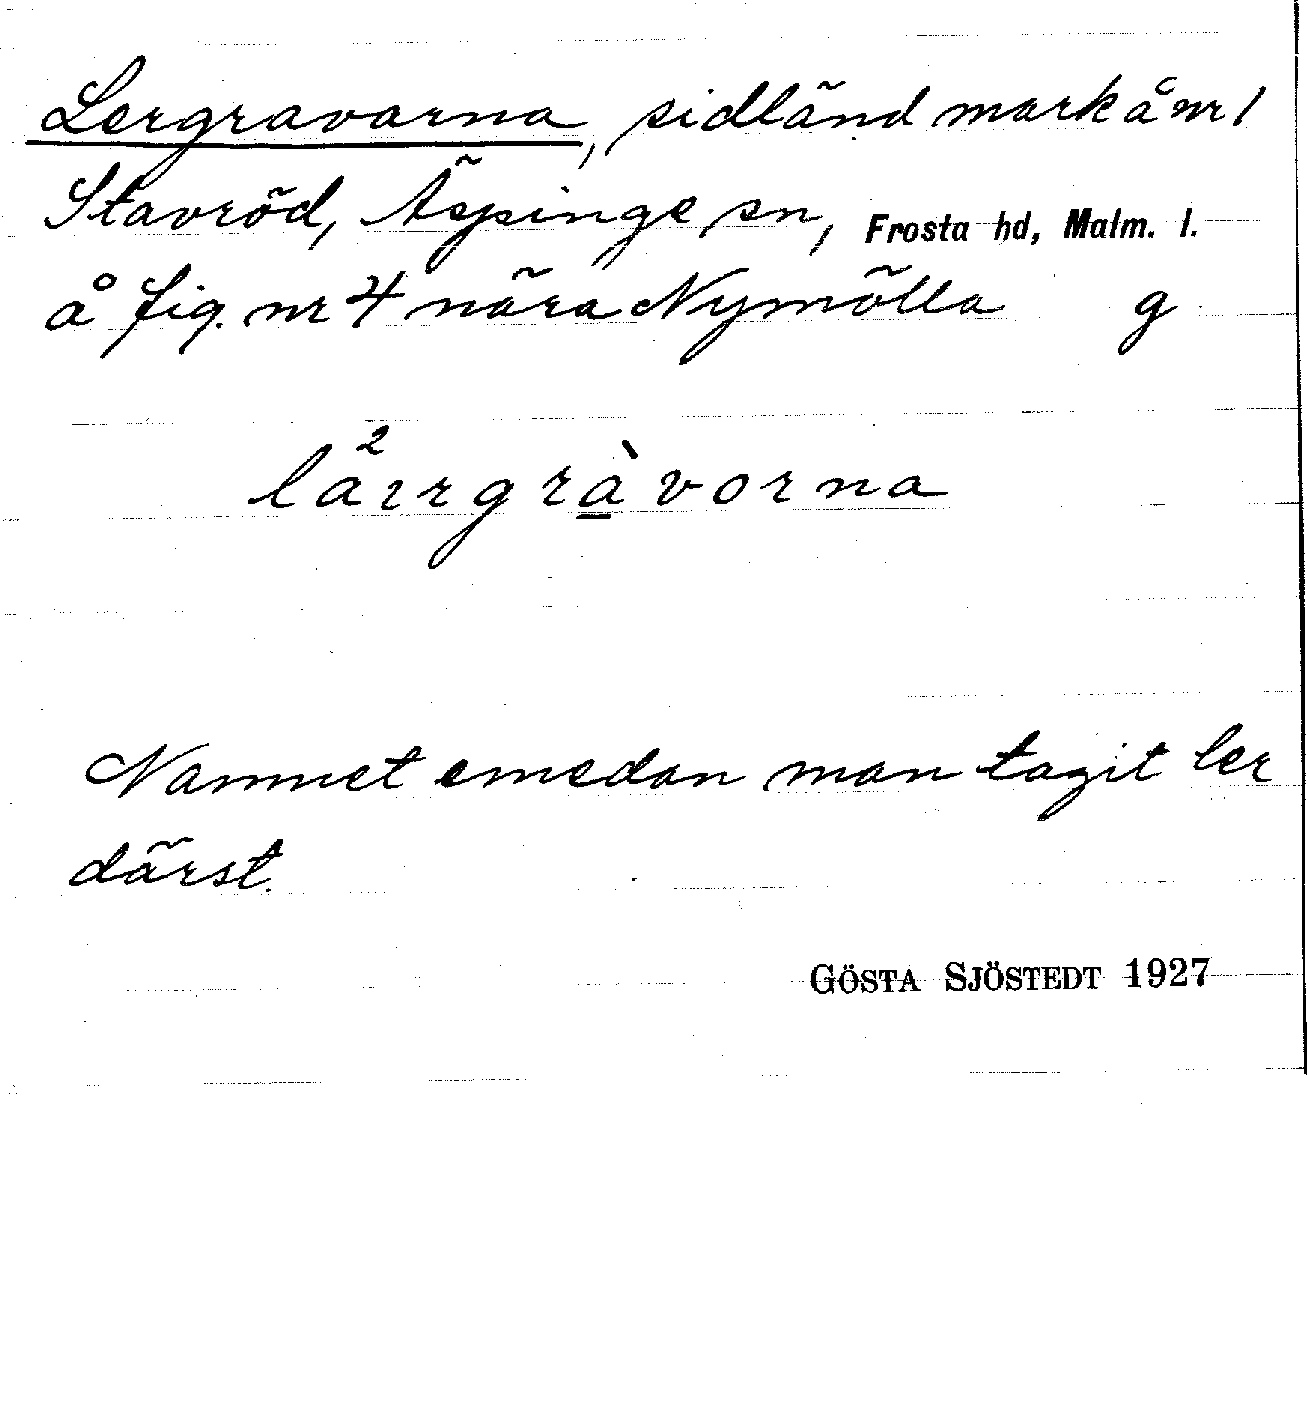 Lergravarna, sidländ mark å nr 1
Stavröd, Äspinge sn, Frosta hd, Malm. l.
å fig. nr 4 nära Nymölla g
Namnet emedan man tagit ler
därst.
GÖSTA SJÖSTEDT 1927